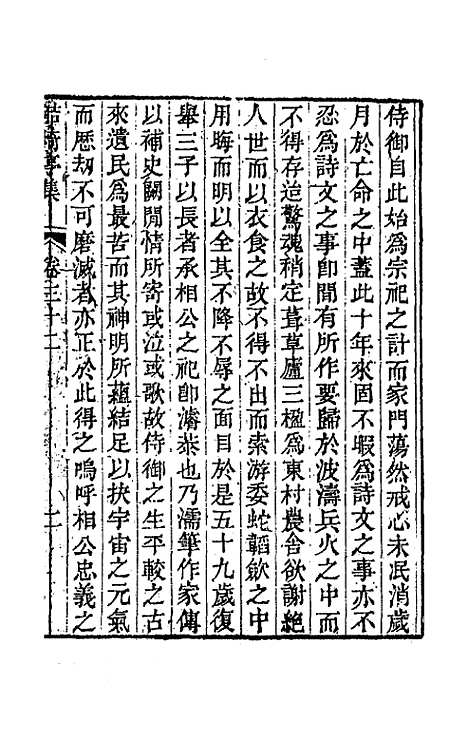 侍御自此始爲宗祀之計而家門蕩然戒心未泯消歲
月於亡命之中蓋此十年來固不暇爲詩文之事亦不
忍爲詩文之事卽間有所作要歸於波濤兵火之中而
不得存迨驚魂稍定葺草廬三楹爲東村農舍欲謝絶
人世而以衣食之故不得不出而索游委蛇韜歛之中
用晦而明以全其不降不辱之面目於是五十九歲復
舉三子以長者承相公之祀卽濬恭也乃濡筆作家傳
以補史闕閒情所寄或泣或歌故侍御之生平較之古
來遺民爲最苦而其神明所蘊結足以扶宇宙之元氣
而歷刼不可磨滅者亦正於此得之嗚呼相公忠義之
鮚埼亭集 卷三十二